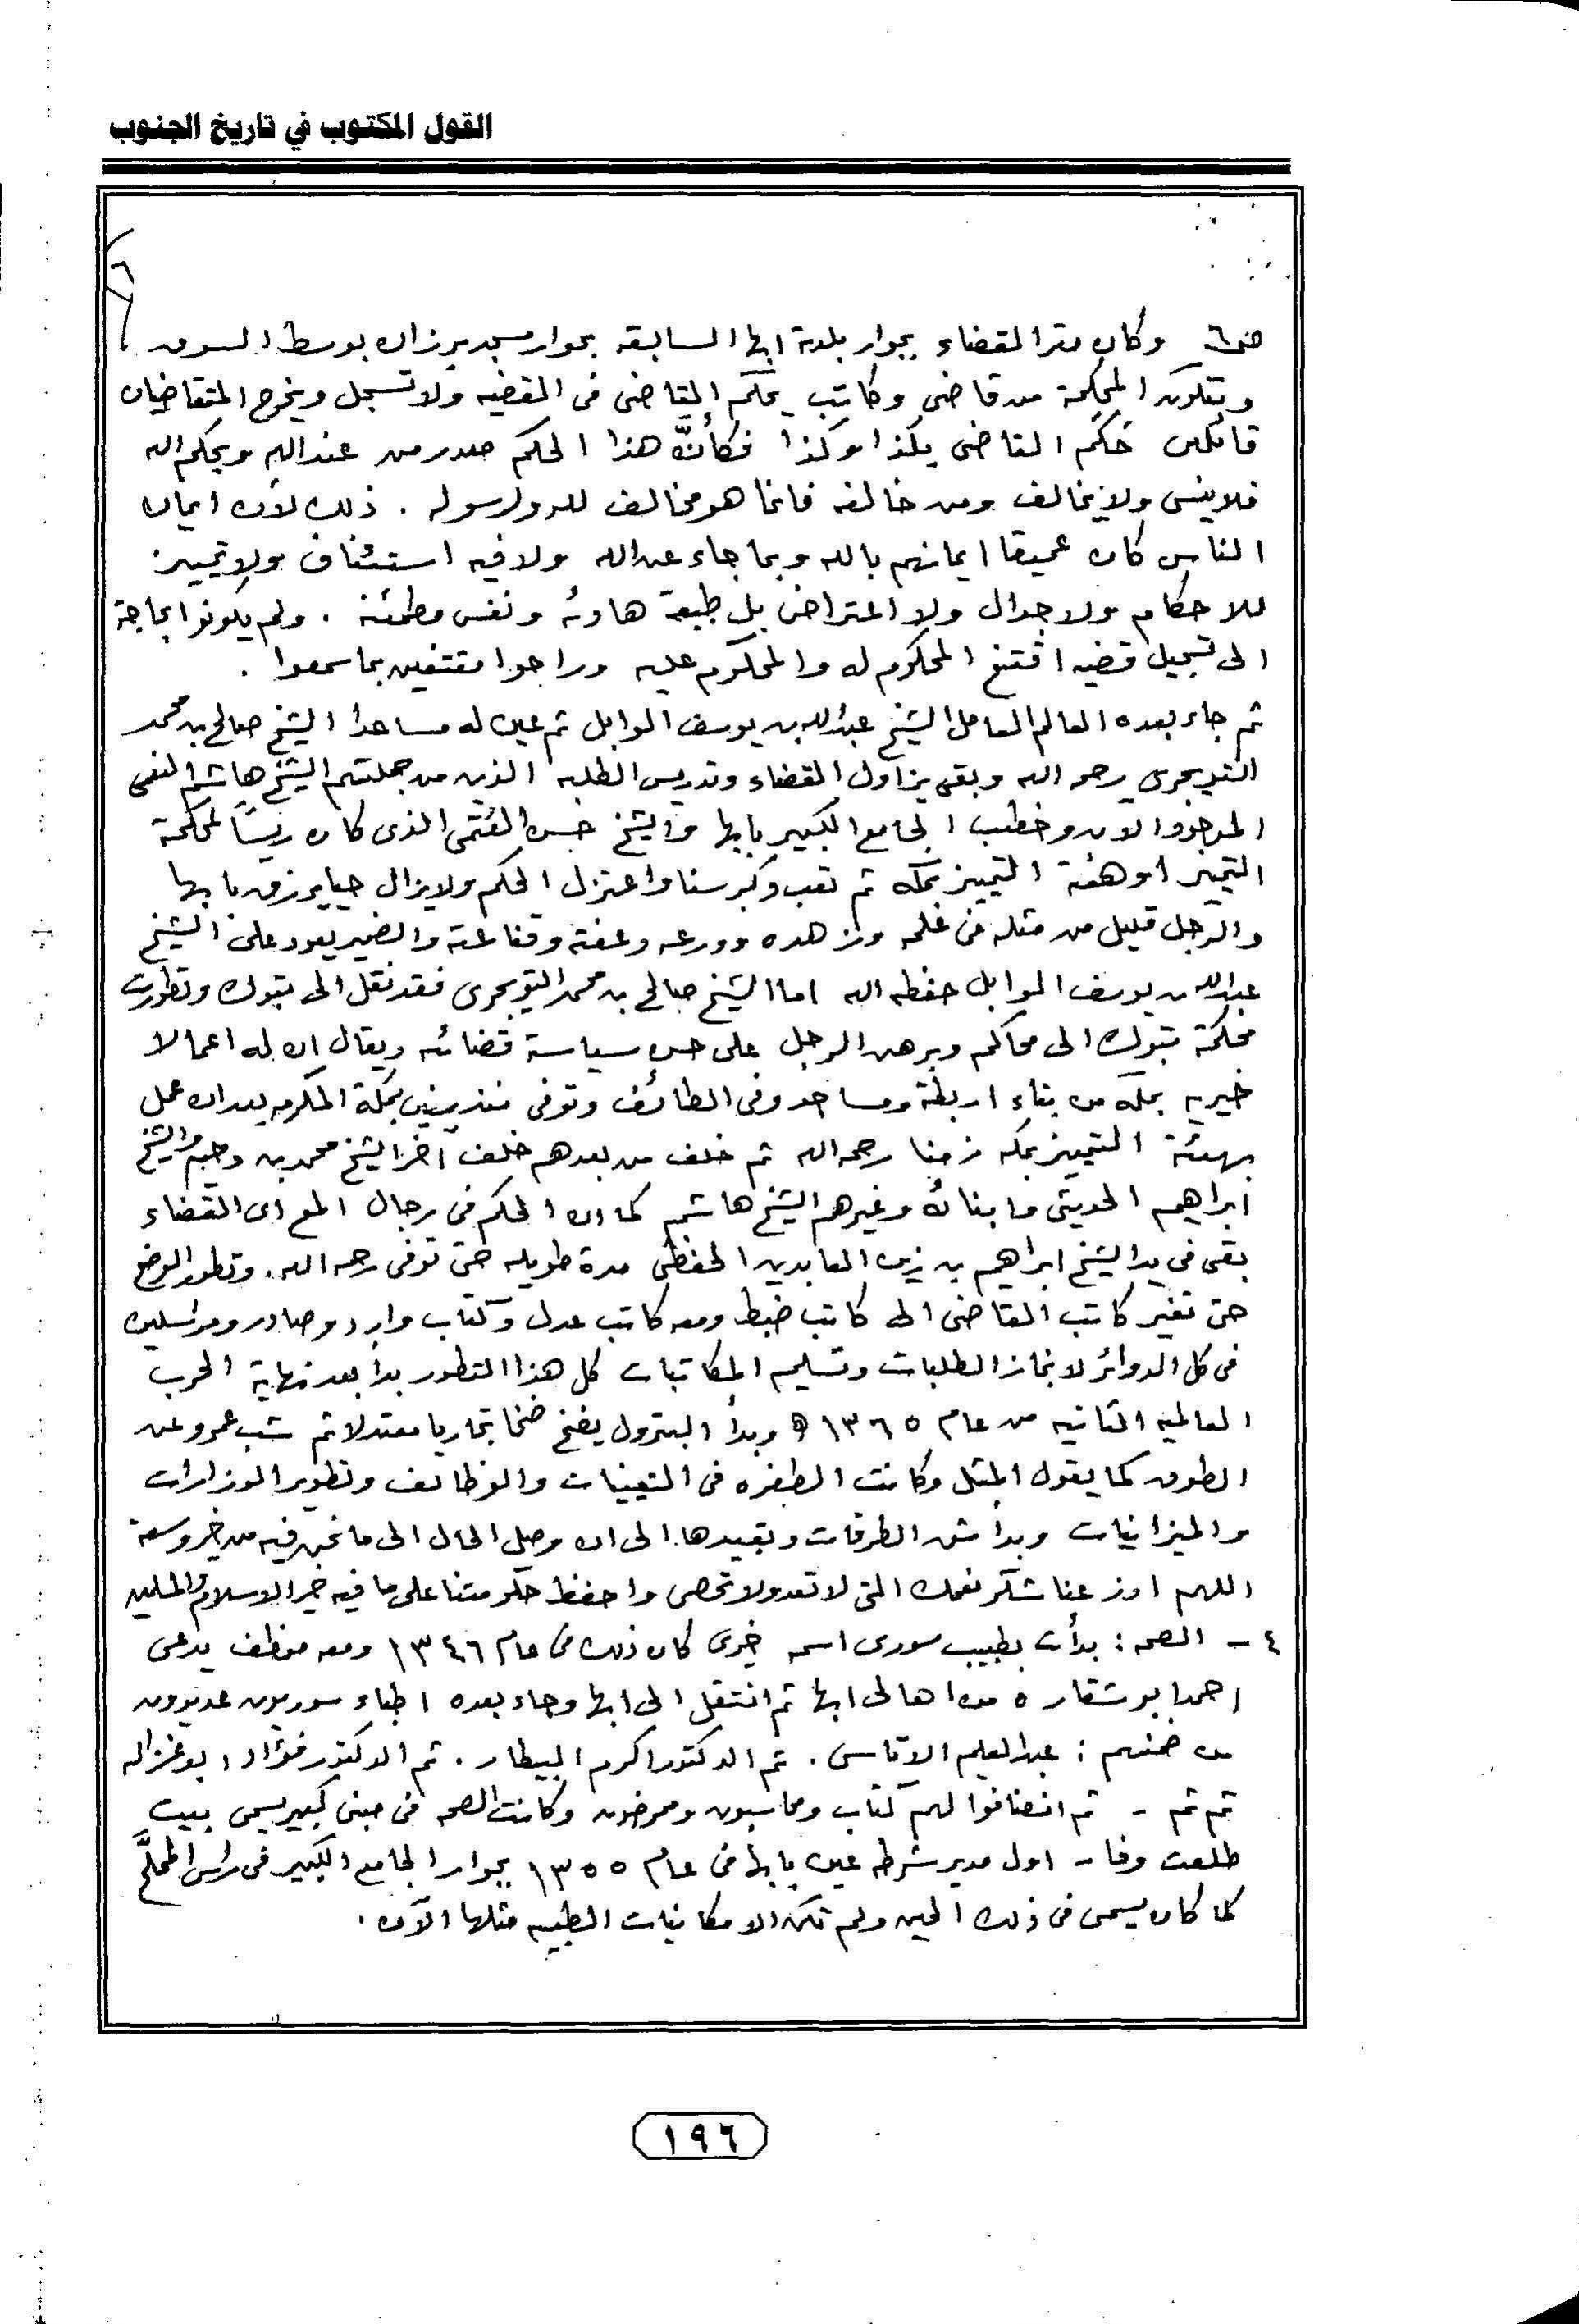 القول المكتوب في تاريخ الجنوب
٦
ص٦ وكان مقر القضاء بجوار بلدية ابها السابقه بجوار مسجد برزان بوسط السوق
وتتكون المحكمة من قاضي وكاتب يحكم القاضى فى القضيه ولا تسجل ويخرج المتقاضيان
قائلين حَكَم القاضى بكذا وكذا فكأنَّ هذا الحكم صدر من عند الله وبحكم الله
فلا ينسى ولا يخالف ومن خالفه فانما هو مخالف لله ولرسوله . ذلك لأن ايمان
الناس كان عميقا ايمانهم بالله وبما جاء عن الله ولا فيه استئناف ولا تمييز
للاحكام ولا جدال ولا اعتراض بل طبيعة هادئه ونفس مطمئنه . ولم يكونوا بحاجة
الى تسجيل قضيه اقتنع المحكوم له والمحكوم عليه وراحوا مقتنعين بما سمعوا .
ثم جاء بعده العالم العامل الشيخ عبدالله بن يوسف الوابل ثم عين له مساعدا الشيخ صالح بن محمد
التويجرى رحمه الله وبقى يزاول القضاء وتدريس الطلبه الذين من جملتهم الشيخ هاشم النعمى
الموجود الان وخطيب الجامع الكبير بابها والشيخ حسن العتمى الذى كان ريسًا لمحكمة
التمييز او هئة التمييز بمكه ثم تعب وكبر سنا واعتزل الحكم ولا يزال حيا يرزق بابها
والرجل قليل من مثله فى علمه وزهده وورعه وعفته وقناعته والضمير يعود على الشيخ
عبدالله بن يوسف الوابل حفظه الله اما الشيخ صالح بن محمد التويجرى فقد نقل الى تبوك وتطورت
محكمة تبوك الى محاكم وبرهن الرجل على حسن سياسة قضائه ويقال ان له اعمالا
خيريه بمكه من بناء اربطة ومساجد وفى الطائف وتوفى منذ سنين بمكة المكرمه بعد ان عمل
بهئة التمييز بمكه زمنا رحمه الله ثم خلف من بعدهم خلف آخر الشيخ محمد بن والشيخ
ابراهيم الحديثى وابنائه وغيرهم الشيخ هاشم كما ان الحكم فى رجال المع اى القضاء
بقى فى يد الشيخ ابراهيم بن زين العابدين الحفظى مدة طويله حتى توفى رحمه الله . وتطور الوضع
حتى تغير كاتب القاضى الى كاتب ضبط ومعه كاتب عدل وكتاب وارد وصادر ومراسلين
فى كل الدوائر لانجاز الطلبات وتسليم المكاتبات كل هذا التطور بدأ بعد نهاية الحرب
العالميه الثانيه من عام ١٣٦٥ ه‍ وبدأ البترول يضخ ضخا تجاريا معتدلا ثم شب عمرو عن
الطوق كما يقول المثل وكانت الطفره فى التعيينات والوظائف وتطوير الوزارات
والميزانيات وبدأ شق الطرقات وتعبيدها الى ان وصل الحال الى ما نحن فيه من خير وسعة
اللهم اوزعنا شكر نعمك التى لا تعد ولا تحصى واحفظ حكومتنا على ما فيه خير الاسلام والمسلمين
٤ - الصحه : بدأت بطبيب سورى اسمه خيرى كان ذلك فى عام ١٣٤٦ ومعه موظف يدعى
احمد ابو شقاره من اهالى ابها ثم انتقل الى ابها وجاء بعده اطباء سوريون عديدون
من ضمنهم : عبدالعليم الاتاسى . ثم الدكتور اكرم البيطار . ثم الدكتور فؤاد ابو غزاله
ثم ثم - ثم انضافوا لهم كتاب ومحاسبون وممرضون وكانت الصحه فى مبنى كبير يسمى ببيت
طلعت وفا - اول مدير شرطه عين بابها فى عام ١٣٥٥ بجوار الجامع الكبير فى راس المملَّح
كما كان يسمى فى ذلك الحين ولم تكن الامكانيات الطبيه مثلها الآن .
١٩٦